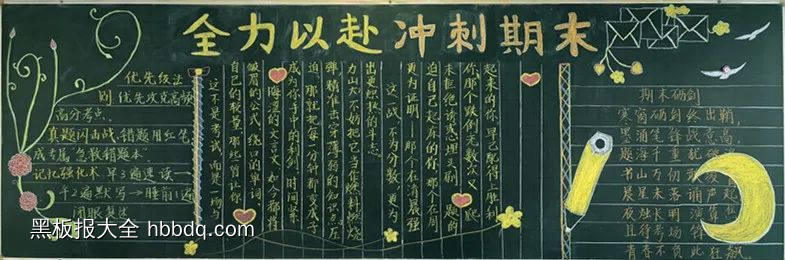 全力以赴 冲刺期末
优先级法
优先攻克高频
高分考点。
真题闪击战 错题用红笔
成专属"急救错题本"。
记忆强化术 早3遍速读—
午2遍默写→睡前1遍
这不是考试，而是一场与
自己的较量。那些曾让你
皱眉的公式、绕口的单词、
晦涩的文言文，如今都将
成为你手中的利剑。时间紧
迫，那就把每一分钟都变成子
弹，精准击穿薄弱的知识点；压
力山大，不妨把它当作燃料，燃烧
出更炽热的斗志。
这一战，不为分数，更为
更为证明——那个在清晨强
迫自己起床的你，那个在周
末拒绝诱惑埋头刷题的
你，那个跌倒无数次又爬
起来的你，早已配得上胜利
期末砺剑
寒窗砺剑终出鞘，
墨涌笔锋战意高。
题海千重
书山万仞
晨星未落诵声起
夜烛长明演算
且待考场
青春不负此狂飙。
黑板报大全 hbbdq.com